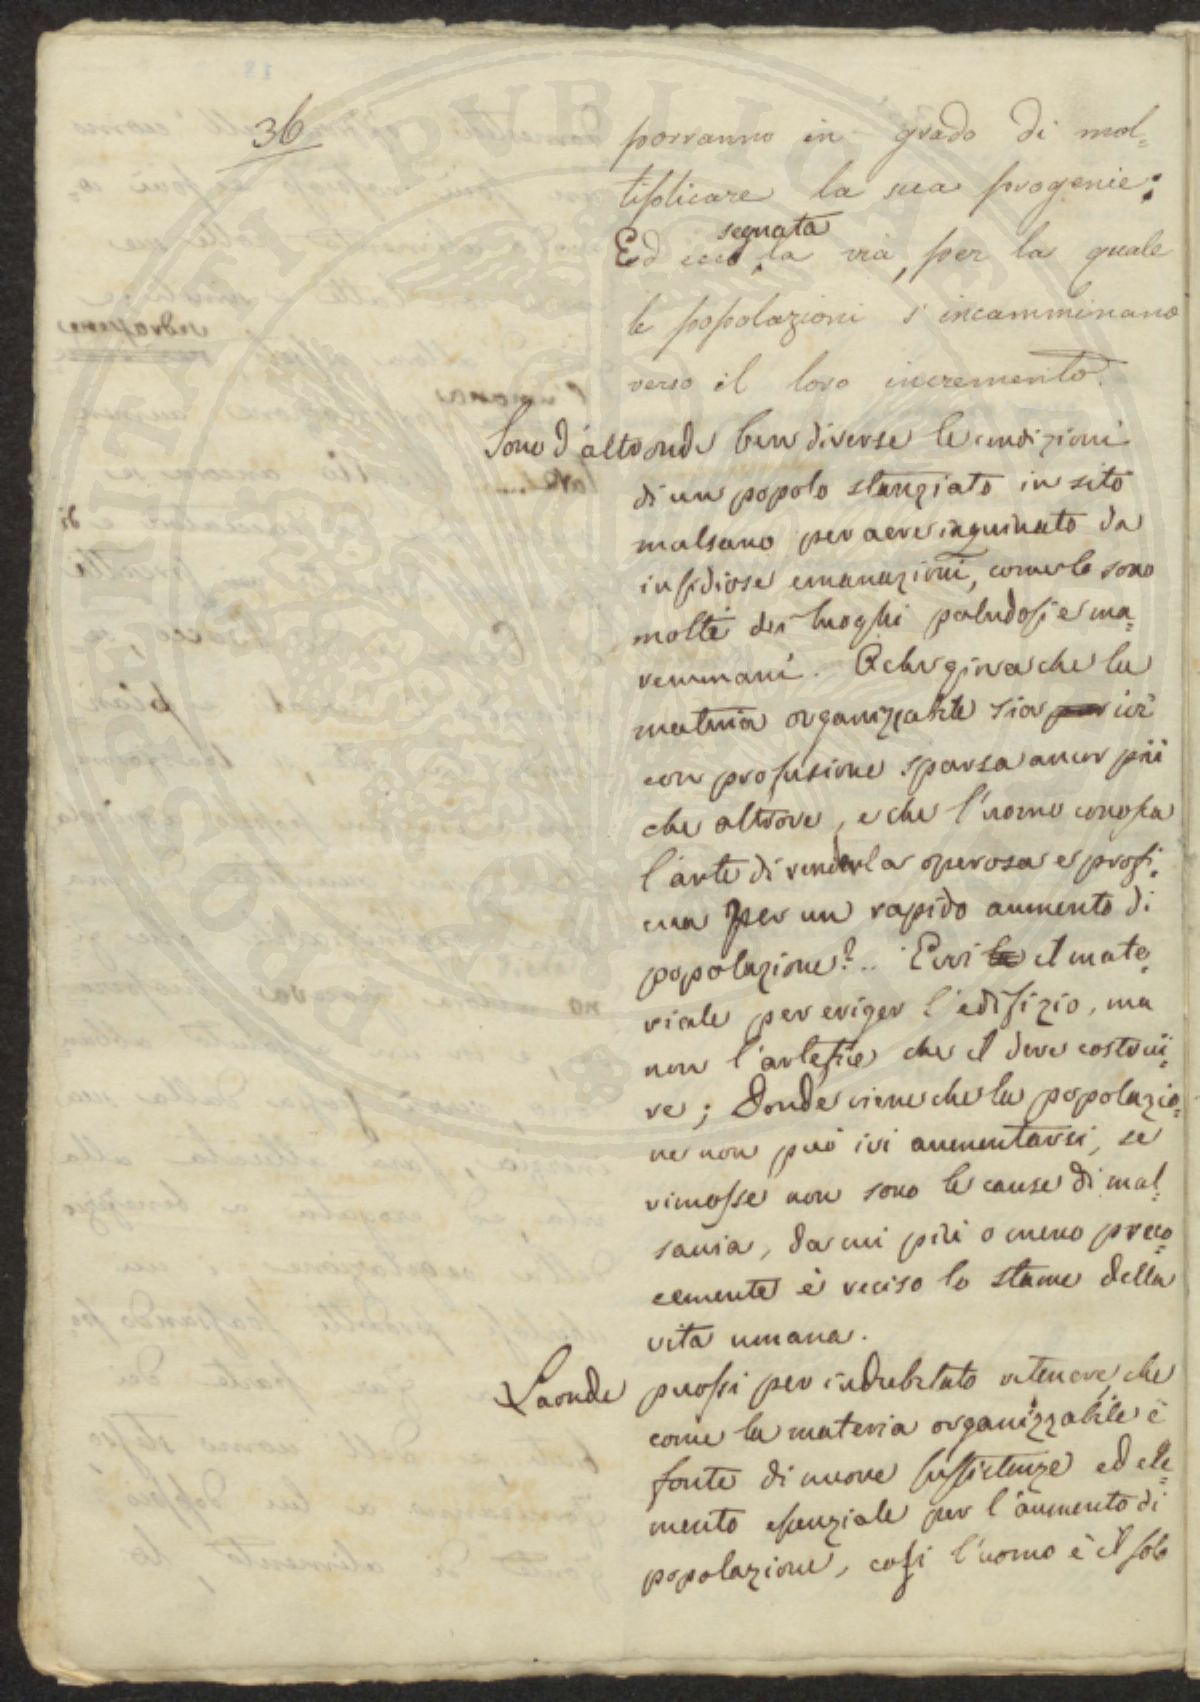 36
porranno in grado di mol=
tiplicare la sua progenie.
segnata
Ed ecco, la via, per la quale
le popolazioni s'incamminano
verso il loro incremento.
Sono d'altronde ben diverse le condizioni
di un popolo stanziato in sito
malsano per aere inquinato da
insidiose emanazioni, come lo sono
molte dei luoghi paludosi e ma=
remmani. A che giova che la
materia organizzabile sia ivi
con profusione sparsa ancor più
che altrove, e che l'uomo conosca
l'arte di renderla operosa e profi=
cua per un rapido aumento di
popolazione?.. Evvi il mate=
riale per eriger l'edifizio, ma
non l'artefice che il deve costrui=
re; Donde viene che la popolazio=
ne non può ivi aumentarsi, se
rimosse non sono le cause di mal=
sania, da cui più o meno preco=
cemente è reciso lo stame della
vita umana.
Laonde puossi per indubitato ritenere, che
come la materia organizzabile è
fonte di nuove sussistenze ed ele=
mento essenziale per l'aumento di
popolazione, così l'uomo è il solo